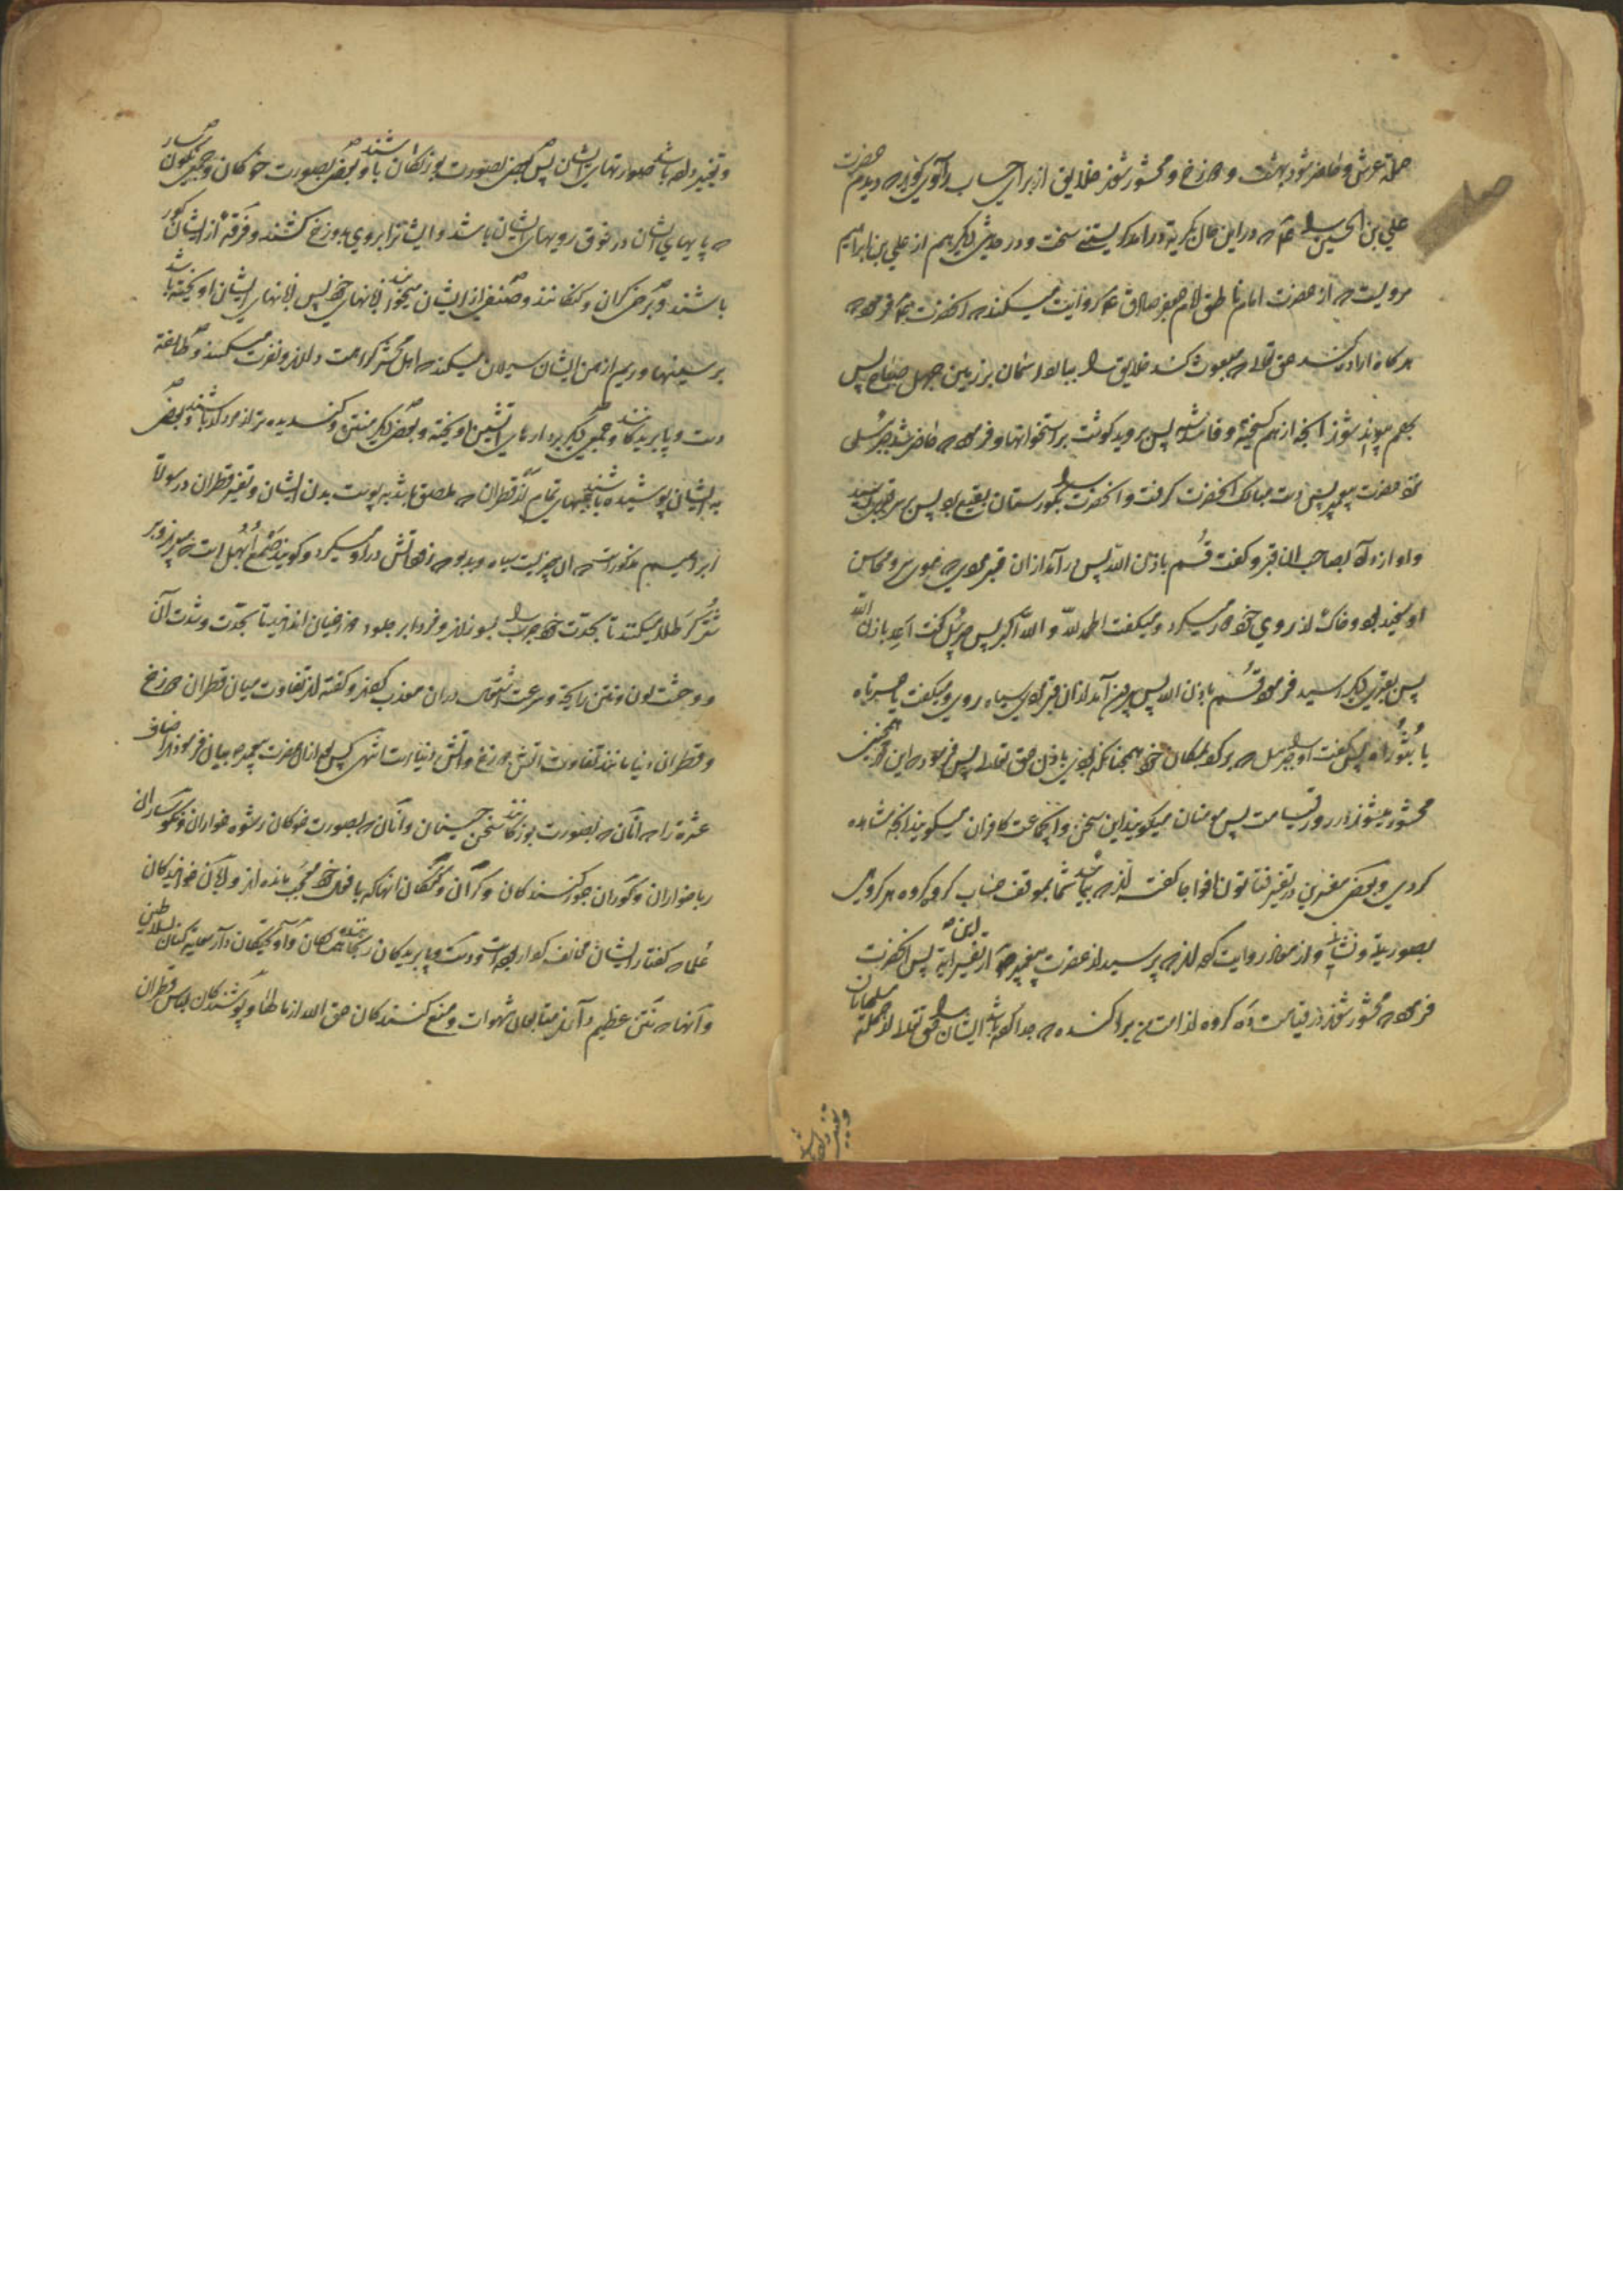 حملهٔ عرش و حاضر شود بهشت و دوزخ و محشور شوند خلایق از برای حساب راوی کوید که دیدم حضرت
علی بن الحسین را که در این حال بگریه درامد کریستنی سخت و در حدیثی دیکر هم از علی بن ابراهیم
مرویست که از حضرت امام ناطق امام جعفر صادق روایت میکند که انحضرت فرمود که
هر کاه اراده کند حق تعالی که مبعوث کند خلایق را بباراند اسمان بر زمین چهل صباح پس
بهم پیوند شوند انچه از هم کسیخته و فاسد شده پس بروید کوشت بر استخوانها و فرمود که حاضر شد جبرئیل
نزد حضرت پیغمبر پس دست مبارک انحضرت کرفت و انحضرت را بکورستان بقیع برد پس بر سر قبری رسید
و اواز داد بصاحب ان قبر و گفت قُم باذن الله پس درآمد از ان قبر مردی که موی سر و محاسن
او سفید بود و خاک از روی خود دور میکرد و میکفت الحمد لله و الله اکبر پس جبرئیل کفت اعد باذن الله
پس بقبری دیکر رسید فرمود قُم باذن الله پس بیرون آمد از ان قبر مردی سیاه روی و میکفت یا حسرتاه
یا ثبوراه پس کفت او را جبرئیل که برکرد بمکان خود همچنانکه بودی باذن حق تعالی پس فرمود که این همچنین
محشور میشوند در روز قیامت پس مومنان میکویند این سخن و انجماعت کافران میکویند انچه مشاهده
کردی و بعضی مفسرین در تفسیر فتاتون افواجا کفته اند که بیائید شما بموقف حساب کروه کروه هر کروهی
بصورتی و نشانی و از معاذ روایت کرده اند که پرسید از حضرت پیغمبر از تفسیر این آیه پس انحضرت
فرمود که محشور شوند در قیامت ده کروه از امت من پراکنده که جدا کرده باشد ایشان را حق تعالی از جمله مسلمانان
و تغییر داده باشد
و تغییر داده باشد صورتهای ایشان پس بعضی بصورت بوزنکان باشند و بعضی بصورت خوکان و جمعی نکونسار
که پایهای ایشان در فوق رویهای ایشان باشد و ایشانرا بروی بدوزخ کشند و فرقهٔ از ایشان کور
باشند و برخی کران و کنکانند و صنفی از ایشان میخوایند زبانهای خود پس زبانهای ایشان اویخته باشد
بر سینها و ریم از دهن ایشان سیلان میکند که اهل محشر کراهت دارند و نفرت میکنند و طایفهٔ
دست و پا بریدکانند و جمعی دیکر بر دارهای اتشین اویخته و بعضی دیکر منتن و کندیده‌تر از مردار باشند و بعضی
به ایشان پوشیده باشند جبهای تمام از قطران که ملصق باشد به پوست بدن ایشان و تفسیر قطران در سوره
ابراهیم مذکورست که ان چیزیست سیاه و بدبو که زود اتش در او میکیرد و کویند صمغ اُبهل است که میپزند و بر
شتر کر طلا میکنند تا بحدت خود جرب را بسوزاند و فردا بر جلود دوزخیان اندازند تا بحدت و شدت آن
و وحشت لون و نتن رایحه و سرعت اشتعال در ان معذب کردند و کفته اند تفاوت میان قطران دوزخ
و قطران دنیا مانند تفاوت اتش دوزخ و اتش دنیاست انتهی پس بعد از ان حضرت پیغمبر بیان فرمود اصناف
عشره را که انان که بصورت بوزنکانند سخن چینان و آنان که بصورت خوکان رشوه خواران و نکونساران
رباخواران و کوران جور کنندکان و کران و کنکان انها که بافعال خود معجب بوده اند و زبان خوایندکان
علما که کفتار ایشان مخالف کردار بوده است و دست و پا بریدکان رنجانندهٔ همسایکان و آویختکان در سعایت کنان سلاطین
و آنها که نتن عظیم دارند متابعان شهوات و منع کنندکان حق الله از مالها و پوشندکان لباس قطران